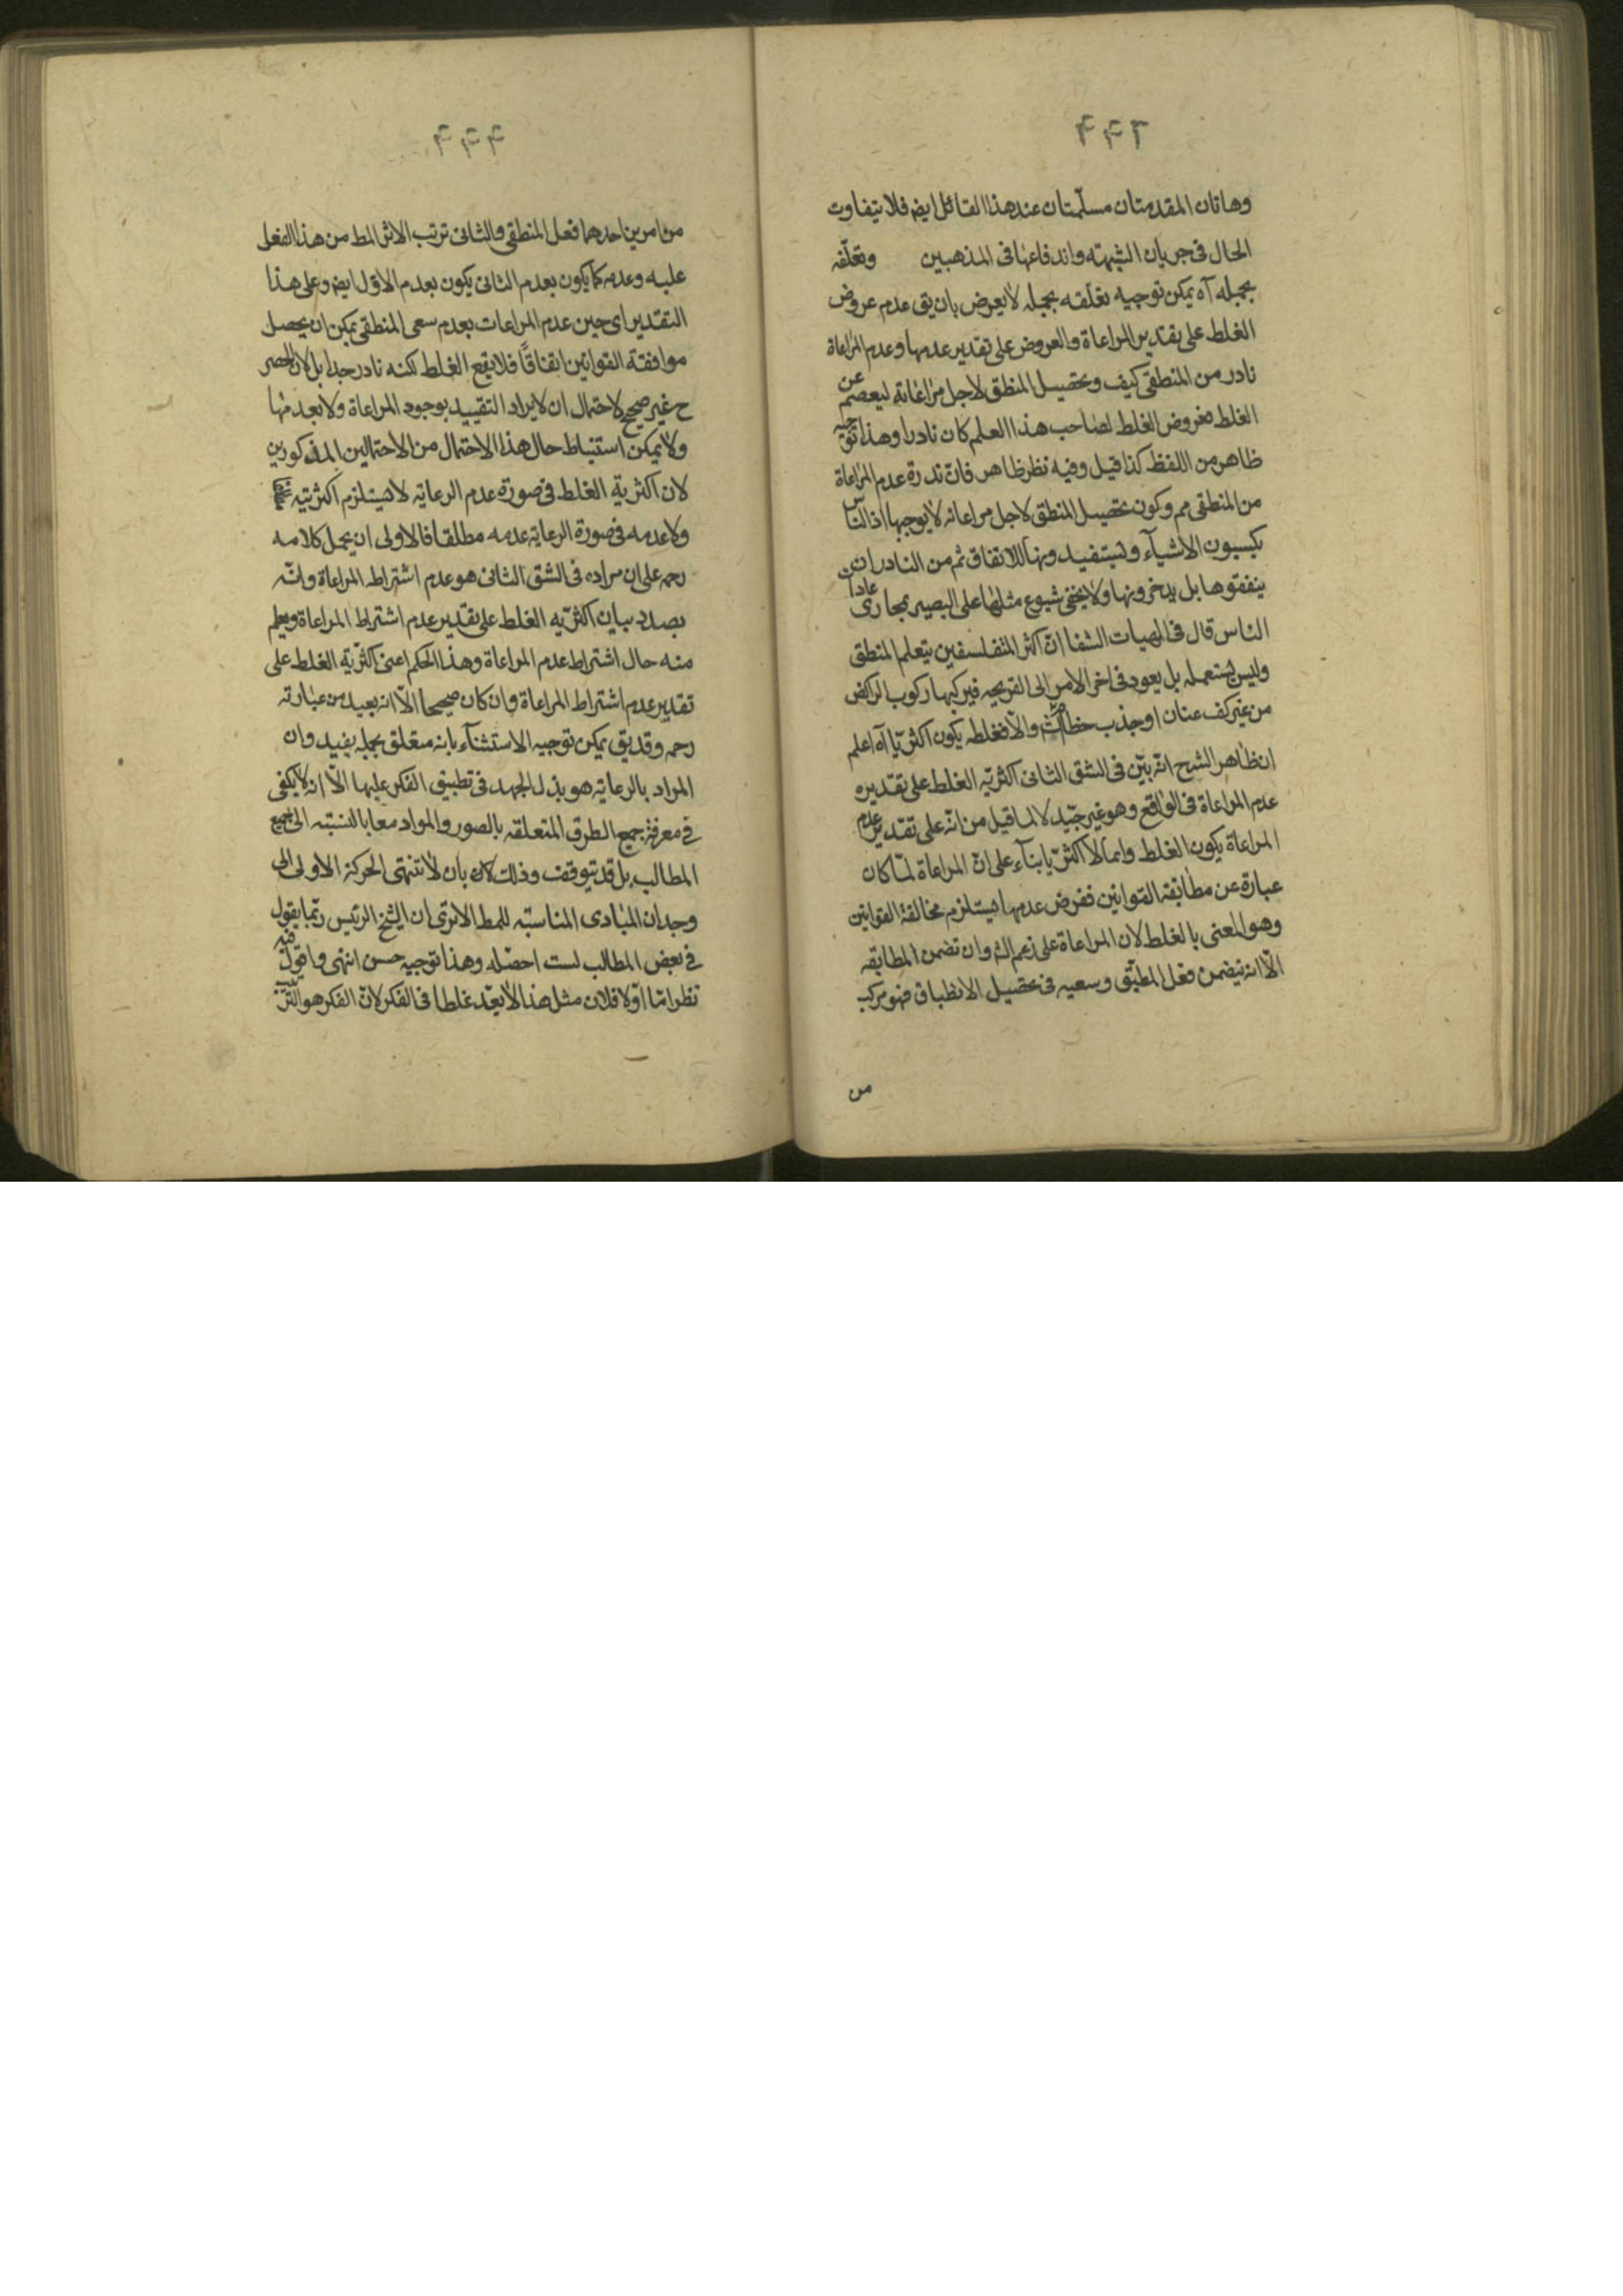 وهاتان المقدمتان مسلّمتان عند هذا القائل ايضه فلا يتفاوت
الحال فى جريان الشبهته واندفاعها فى المذهبين وتعلّقه
بجبله آه يمكن توجيه تعلّقه بجبله لا يعرض بان يق عدم عروض
الغلط على تقدير المراعاة والعروض على تقدير عدمها وعدم المراعاة
نادر من المنطقى كيف وتحصيل المنطق لاجل مراعاته ليعصم عن
الغلط فعروض الغلط لصاحب هذا العلم كان نادرا وهذا توجيه
ظاهر من اللفظ كذا قيل وفيه نظر ظاهر فان ندرة عدم المراعاة
من المنطقى مم وكون تحصيل المنطق لاجل مراعاته لا يوجبها اذ الناس
يكسبون الاشيآء ويستفيدونها للانفاق ثم من النادر ان
ينفقوها بل يدخرونها ولا يخفى شيوع مثلها على البصير بمجارى عادات
الناس قال فى الهيات الشفا انّ اكثر المتفلسفين يتعلم المنطق
وليس يستعمله بل يعود فى اخر الامر الى القريحه فيركبها ركوب الراكض
من غير كف عنان او جذب خطام والّا فغلطه يكون اكثريّا آه اعلم
ان ظاهر الشرح انّه بيّن فى الشق الثانى اكثريّه الغلط على تقديره
عدم المراعاة فى الواقع وهو غير جيّد لا لما قيل من انّه على تقدير عدم
المراعاة يكون الغلط دايما لا اكثريّا بنآء على انّ المراعاة لمّا كان
عبارة عن مطابقة القوانين ففرض عدمها يستلزم مخالفة القوانين
وهو المعنى بالغلط لان المراعاة على زعم الش وان تضمن المطابقه
الّا انه يتضمن فعل المطبّق وسعيه فى تحصيل الانطباق فهو مركب
من
من امرين احدهما فعل المنطقى والثانى ترتب الاثر المط من هذا الفعل
عليه وعدمه كما يكون بعدم الثانى يكون بعدم الاوّل ايضه وعلى هذا
التقدير اى حين عدم المراعات بعدم سعى المنطقى يمكن ان يحصل
موافقته القوانين اتفاقًا فلا يقع الغلط لكنه نادر جدا بل لان الحصر
ح غير صحيح لاحتمال ان لا يراد التقييد بوجود المراعاة ولا بعدمها
ولا يمكن استنباط حال هذا الاحتمال من الاحتمالين المذكورين
لان اكثرية الغلط فى صورة عدم الرعاية لا يستلزم اكثريته
ولا عدمه فى صورة الرعاية عدمه مطلقا فالاولى ان يحمل كلامه
رحمه على ان مراده فى الشق الثانى هو عدم اشتراط المراعاة وانّه
بصدد بيان اكثريّه الغلط على تقدير عدم اشتراط المراعاة ويعلم
منه حال اشتراط عدم المراعاة وهذا الحكم اعنى اكثريّة الغلط على
تقدير عدم اشتراط المراعاة وان كان صحيحا الّا انه بعيد من عبارته
رحمه وقد يق يمكن توجيه الاستثنآء بانه متعلق بجبله يفيد وان
المراد بالرعايته هو بذل الجهد فى تطبيق الفكر عليها الّا انه لا يكفى
فى معرفة جميع الطرق المتعلقه بالصور والمواد معا بالنسبته الى جميع
المطالب بل قد يتوقف وذلك بان لا تنتهى الحركة الاولى الى
وجدان المبادى المناسبته للمط الا ترى ان الشيخ الرئيس ربّما يقول
فى بعض المطالب لست احصّله وهذا توجيه حسن انتهى واقول فيه
نظر امّا اوّلا فلان مثل هذا لا يعدّ غلطا فى الفكر لانّ الفكر هو الترتيب